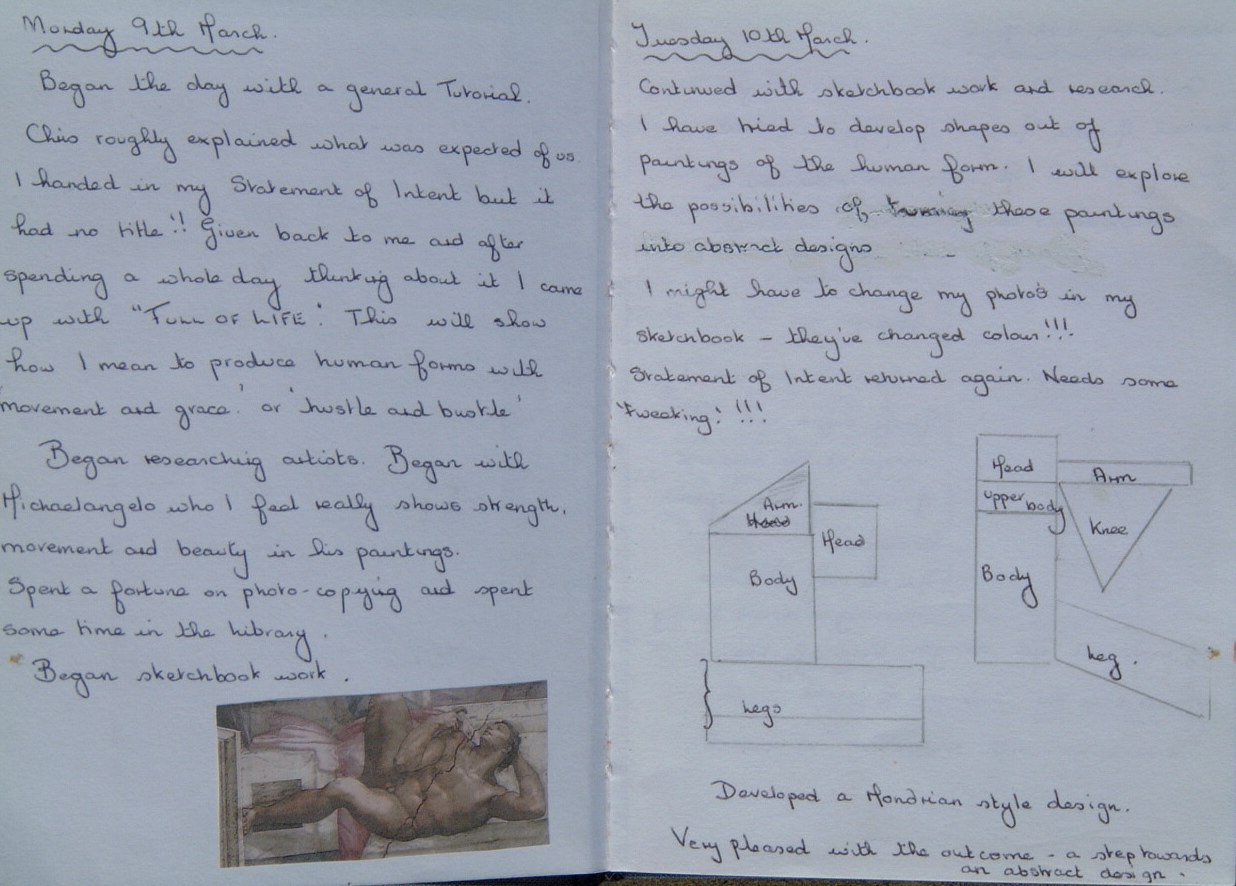 Monday 9th March.
Began the day with a general Tutorial.
Chris roughly explained what was expected of us.
I handed in my Statement of Intent but it
had no title!! Given back to me and after
spending a whole day thinking about it I came
up with "FULL OF LIFE". This will show
how I mean to produce human forms with
'movement and grace.' or 'hustle and bustle'
Began researching artists. Began with
Michaelangelo who I feel really shows strength,
movement and beauty in his paintings.
Spent a fortune on photo-copying and spent
some time in the Library.
Began sketchbook work.
Tuesday 10th March.
Continued with sketchbook work and research.
I have tried to develop shapes out of
paintings of the human form. I will explore
the possibilities of turning these paintings
into abstract designs
I might have to change my photo's in my
sketchbook - they've changed colour!!!
Statement of Intent returned again. Needs some
'tweaking.' !!!
Arm.
Head
Body
Legs
Head
Arm
upper body
Knee
Body
Leg.
Developed a Mondrian style design.
Very pleased with the outcome - a step towards
an abstract design.